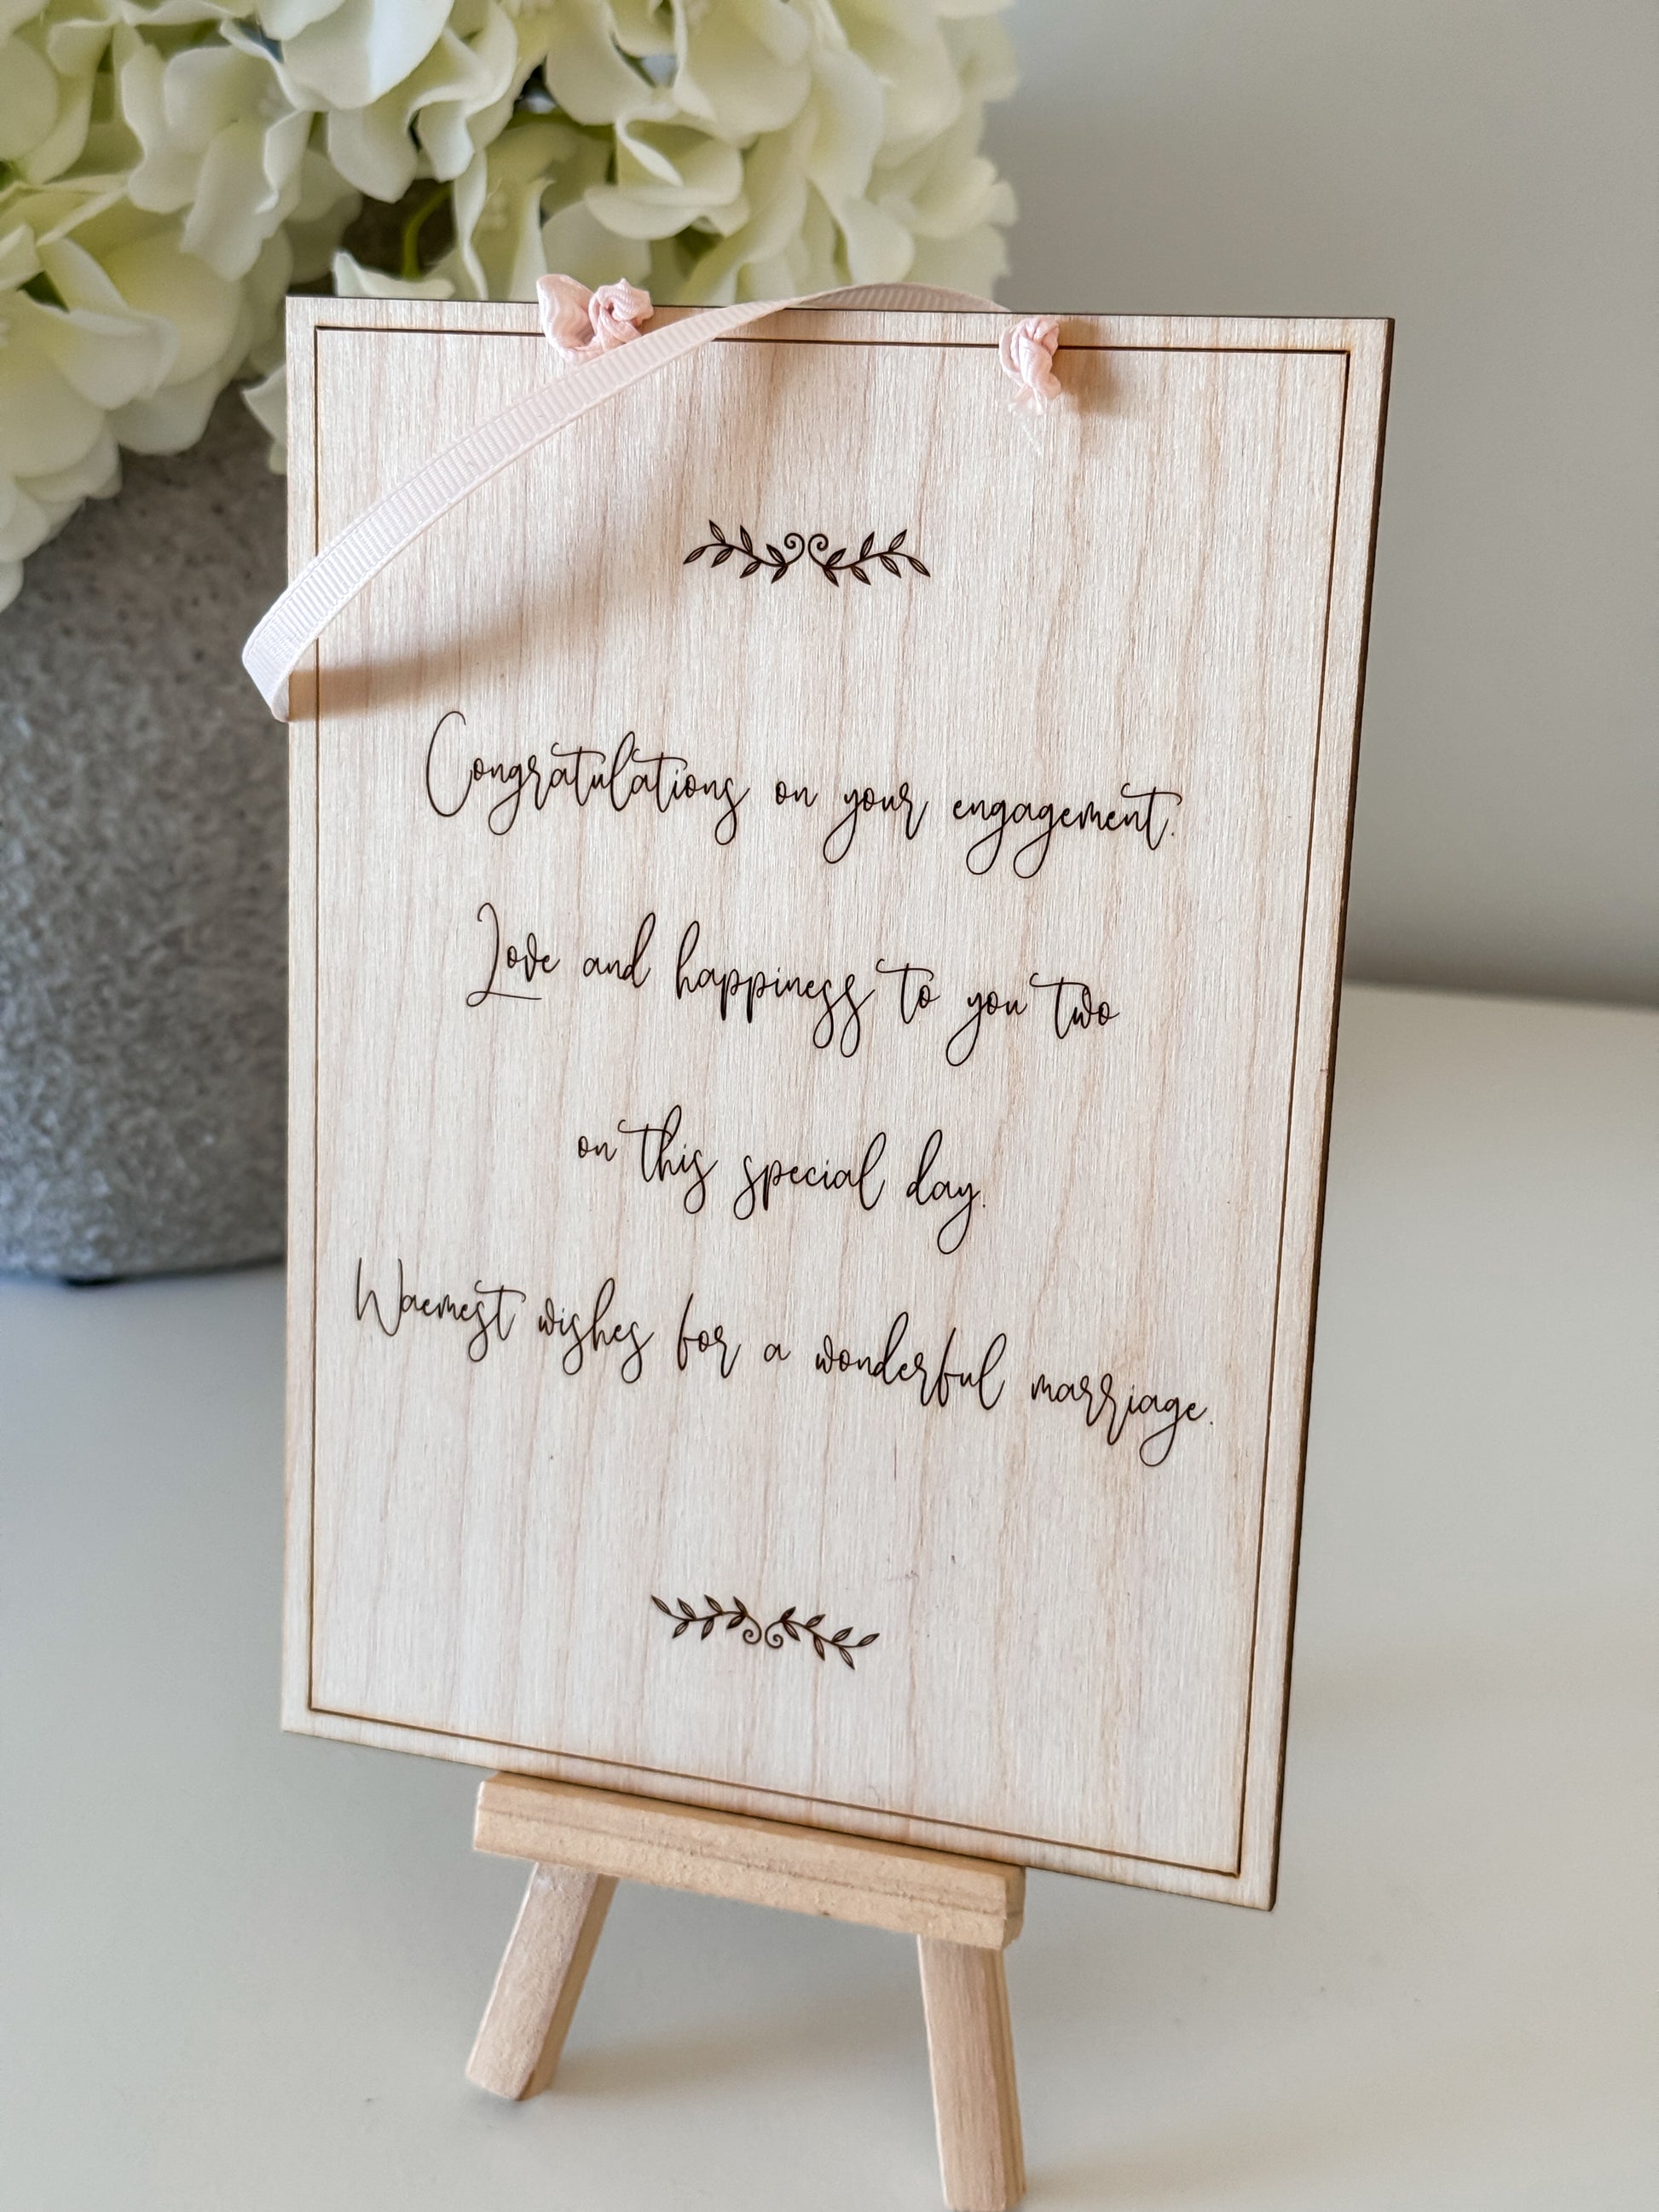 Congratulations on your engagement.
Love and happiness to you two
on this special day.
Waemest wishes for a wonderful marriage.